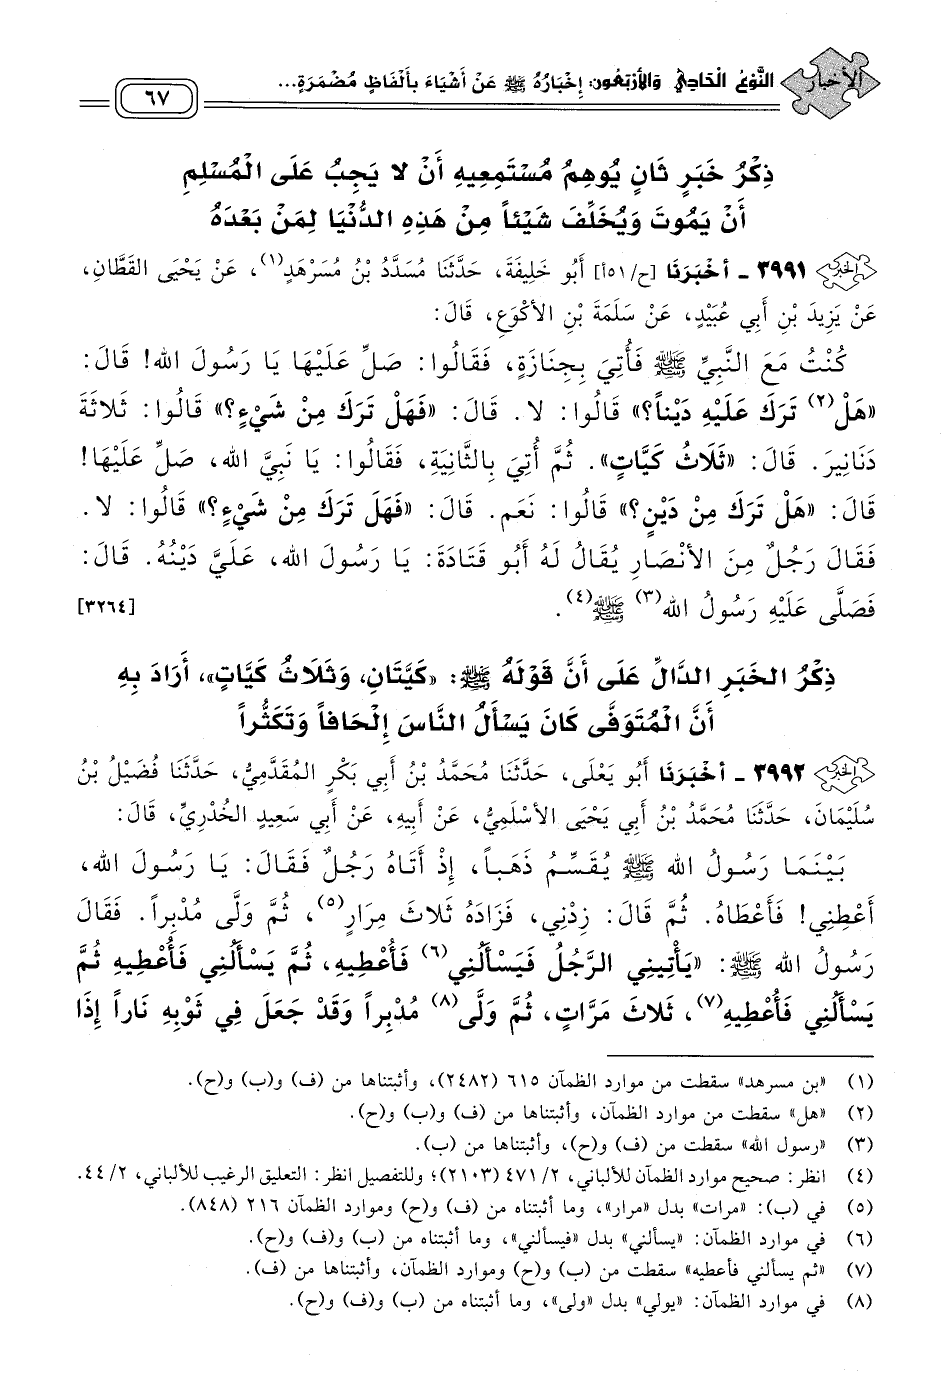 الأخبار
النَّوْعُ الْحَادِي وَالأَرْبَعُونَ: إِخْبَارُهُ ﷺ عَنْ أَشْيَاءَ بِأَلْفَاظٍ مُضْمَرَةٍ...
٦٧
ذِكْرُ خَبَرٍ ثَانٍ يُوهِمُ مُسْتَمِعِيهِ أَنْ لا يَجِبُ عَلَى الْمُسْلِمِ
أَنْ يَمُوتَ وَيُخَلِّفَ شَيْئاً مِنْ هَذِهِ الدُّنْيَا لِمَنْ بَعْدَهُ
الخبر ٣٩٩١ - أَخْبَرَنَا [ح/٥١أ] أَبُو خَلِيفَةَ، حَدَّثَنَا مُسَدَّدُ بْنُ مُسَرْهَدٍ(١)، عَنْ يَحْيَى القَطَّانِ،
عَنْ يَزِيدَ بْنِ أَبِي عُبَيْدٍ، عَنْ سَلَمَةَ بْنِ الأَكْوَعِ، قَالَ:
كُنْتُ مَعَ النَّبِيِّ ﷺ فَأُتِيَ بِجِنَازَةٍ، فَقَالُوا: صَلِّ عَلَيْهَا يَا رَسُولَ اللهِ! قَالَ:
«هَلْ(٢) تَرَكَ عَلَيْهِ دَيْناً؟» قَالُوا: لا. قَالَ: «فَهَلْ تَرَكَ مِنْ شَيْءٍ؟» قَالُوا: ثَلاثَةَ
دَنَانِيرَ. قَالَ: «ثَلَاثُ كَيَّاتٍ». ثُمَّ أُتِيَ بِالثَّانِيَةِ، فَقَالُوا: يَا نَبِيَّ اللهِ، صَلِّ عَلَيْهَا!
قَالَ: «هَلْ تَرَكَ مِنْ دَيْنٍ؟» قَالُوا: نَعَم. قَالَ: «فَهَلَ تَرَكَ مِنْ شَيْءٍ؟» قَالُوا: لا.
فَقَالَ رَجُلٌ مِنَ الأَنْصَارِ يُقَالُ لَهُ أَبُو قَتَادَةَ: يَا رَسُولَ اللهِ، عَلَيَّ دَيْنُهُ. قَالَ:
فَصَلَّى عَلَيْهِ رَسُولُ اللهِ(٣) ﷺ(٤). [٣٢٦٤]
ذِكْرُ الخَبَرِ الدَّالِّ عَلَى أَنَّ قَوْلَهُ ﷺ: «كَيَّتَانِ، وَثَلَاثُ كَيَّاتٍ»، أَرَادَ بِهِ
أَنَّ الْمُتَوَفَّى كَانَ يَسْأَلُ النَّاسَ إِلْحَافاً وَتَكَثُّراً
الخبر ٣٩٩٢ - أَخْبَرَنَا أَبُو يَعْلَى، حَدَّثَنَا مُحَمَّدُ بْنُ أَبِي بَكْرٍ المُقَدَّمِيُّ، حَدَّثَنَا فُضَيْلُ بْنُ
سُلَيْمَانَ، حَدَّثَنَا مُحَمَّدُ بْنُ أَبِي يَحْيَى الأَسْلَمِيُّ، عَنْ أَبِيهِ، عَنْ أَبِي سَعِيدٍ الخُدْرِيِّ، قَالَ:
بَيْنَمَا رَسُولُ اللهِ ﷺ يُقَسِّمُ ذَهَباً، إِذْ أَتَاهُ رَجُلٌ فَقَالَ: يَا رَسُولَ اللهِ،
أَعْطِنِي! فَأَعْطَاهُ. ثُمَّ قَالَ: زِدْنِي، فَزَادَهُ ثَلَاثَ مِرَارٍ(٥)، ثُمَّ وَلَّى مُدْبِراً. فَقَالَ
رَسُولُ اللهِ ﷺ: «يَأْتِينِي الرَّجُلُ فَيَسْأَلُنِي(٦) فَأُعْطِيهِ، ثُمَّ يَسْأَلُنِي فَأُعْطِيهِ ثُمَّ
يَسْأَلُنِي فَأُعْطِيهِ(٧)، ثَلَاثَ مَرَّاتٍ، ثُمَّ وَلَّى(٨) مُدْبِراً وَقَدْ جَعَلَ فِي ثَوْبِهِ نَاراً إِذَا
(١) «بن مسرهد» سقطت من موارد الظمآن ٦١٥ (٢٤٨٢)، وأثبتناها من (ف) و(ب) و(ح).
(٢) «هل» سقطت من موارد الظمآن، وأثبتناها من (ف) و(ب) و(ح).
(٣) «رسول الله» سقطت من (ف) و(ح)، وأثبتناها من (ب).
(٤) انظر: صحيح موارد الظمآن للألباني، ٢/ ٤٧١ (٢١٠٣)؛ وللتفصيل انظر: التعليق الرغيب للألباني، ٢/ ٤٤.
(٥) في (ب): «مرات» بدل «مرار»، وما أثبتناه من (ف) و(ح) وموارد الظمآن ٢١٦ (٨٤٨).
(٦) في موارد الظمآن: «يسألني» بدل «فيسألني»، وما أثبتناه من (ب) و(ف) و(ح).
(٧) «ثم يسألني فأعطيه» سقطت من (ب) و(ح) وموارد الظمآن، وأثبتناها من (ف).
(٨) في موارد الظمآن: «يولي» بدل «ولى»، وما أثبتناه من (ب) و(ف) و(ح).